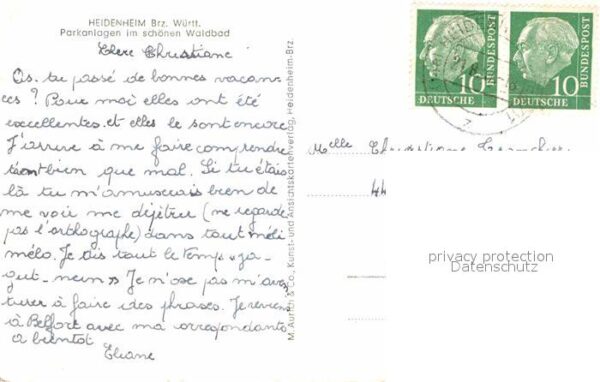 HEIDENHEIM Brz. Württ.
Parkanlagen im schönen Waldbad
Chere Christiane
As. tu passé de bonnes vacan-
ces ? Pour moi elles ont été
excellentes et elles le sont encore
J'arrive à me faire comprendre
tant bien que mal. Si tu étais
là tu m'amuserais bien de
me voir me déjétru (ne regarde
pas l'orthographe) dans tout méli
mélo. Je dis tout le temps « ja-
gut-nein » Je n'ose pas m'aven
turer à faire des phrases. Je reviens
à Belfort avec ma correspondante
a bientôt
Eliane
M. Aurich & Co., Kunst- und Ansichtskartenverlag, Heidenheim-Brz.
10
DEUTSCHE
BUNDESPOST
10
DEUTSCHE
BUNDESPOST
Melle Christiane
44
privacy protection
Datenschutz